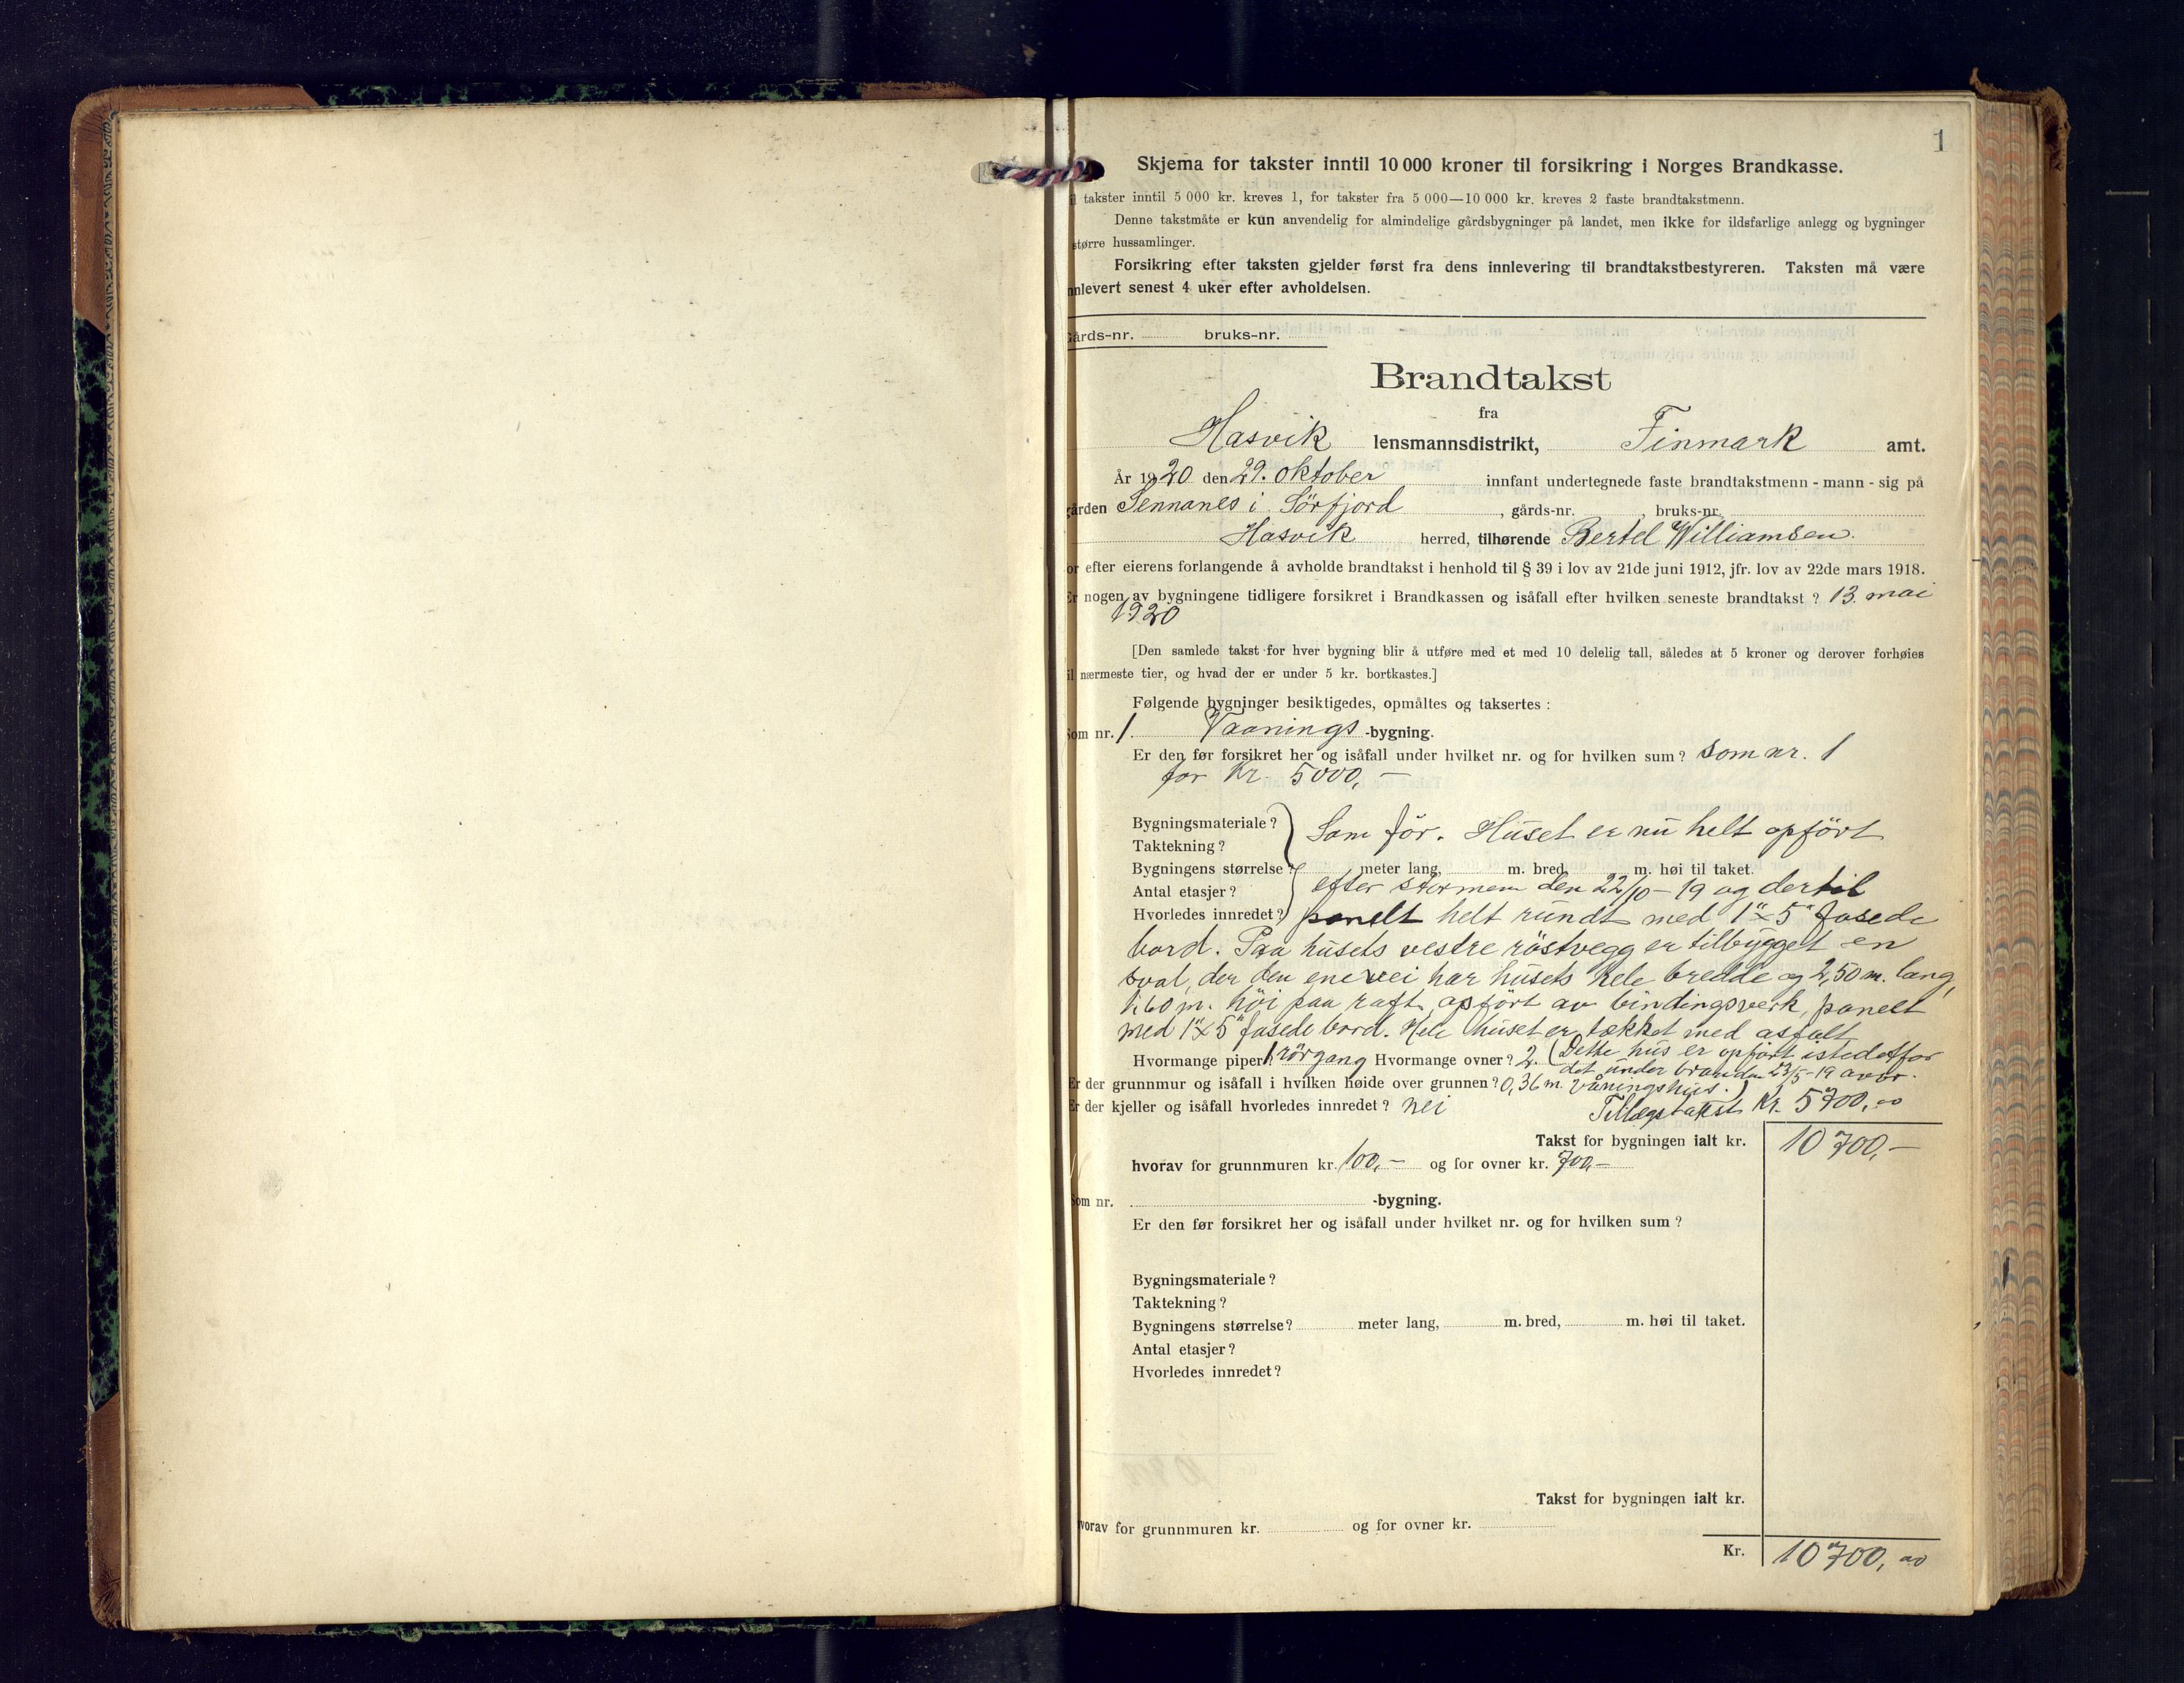 1
Skjema for takster inntil 10 000 kroner til forsikring i Norges Brandkasse.
l takster inntil 5 000 kr. kreves 1, for takster fra 5 000—10 000 kr. kreves 2 faste brandtakstmenn.
Denne takstmåte er kun anvendelig for almindelige gårdsbygninger på landet, men ikke for ildsfarlige anlegg og bygninger
større hussamlinger.
Forsikring efter taksten gjelder først fra dens innlevering til brandtakstbestyreren. Taksten må være
nnlevert senest 4 uker efter avholdelsen.
Gårds-nr. bruks-nr.
Brandtakst
fra
Hasvik lensmannsdistrikt, Finmark amt.
År 1920 den 29. oktober innfant undertegnede faste brandtakstmenn - mann - sig på
gården Sennanes i Sörfjord, gårds-nr. , bruks-nr.
Hasvik herred, tilhørende Bertel Williamsen.
or efter eierens forlangende å avholde brandtakst i henhold til § 39 i lov av 21de juni 1912, jfr. lov av 22de mars 1918.
Er nogen av bygningene tidligere forsikret i Brandkassen og isåfall efter hvilken seneste brandtakst? 13. mai
1920
[Den samlede takst for hver bygning blir å utføre med et med 10 delelig tall, således at 5 kroner og derover forhøies
il nærmeste tier, og hvad der er under 5 kr. bortkastes.]
Følgende bygninger besiktigedes, opmåltes og taksertes:
Som nr. 1 Vaanings -bygning.
Er den før forsikret her og isåfall under hvilket nr. og for hvilken sum? Som nr. 1
for Kr. 5000,-
Bygningsmateriale?
Som för. Huset er nu helt opfört
Taktekning?
Bygningens størrelse? meter lang, m. bred, m. høi til taket.
Antal etasjer? efter stormen den 22/10-19 og dertil
Hvorledes innredet? panelt helt rundt med 1"x5" fasede
bord. Paa husets vestre röstvegg er tilbygget en
sval, der den ene vei har husets hele bredde og 2,50 m. lang,
1,60 m. höi paa raft, opfört av bindingsverk, panelt
med 1"x5" fasede bord. Hele huset er tækket med asfalt
Hvormange piper? 1 rörgang Hvormange ovner? 2. (Dette hus er opfört istedetfor
det under branden 23/5-19 avbr.
Er der grunnmur og isåfall i hvilken høide over grunnen? 0,36 m. våningshus.)
Er der kjeller og isåfall hvorledes innredet? nei Tillægstakst Kr. 5700,00
Takst for bygningen ialt kr. 10700,-
hvorav for grunnmuren kr. 100,- og for ovner kr. 700,-
Som nr. -bygning.
Er den før forsikret her og isåfall under hvilket nr. og for hvilken sum?
Bygningsmateriale?
Taktekning?
Bygningens størrelse? meter lang, m. bred, m. høi til taket.
Antal etasjer?
Hvorledes innredet?
Takst for bygningen ialt kr.
vorav for grunnmuren kr. og for ovner kr.
Kr. 10700,00